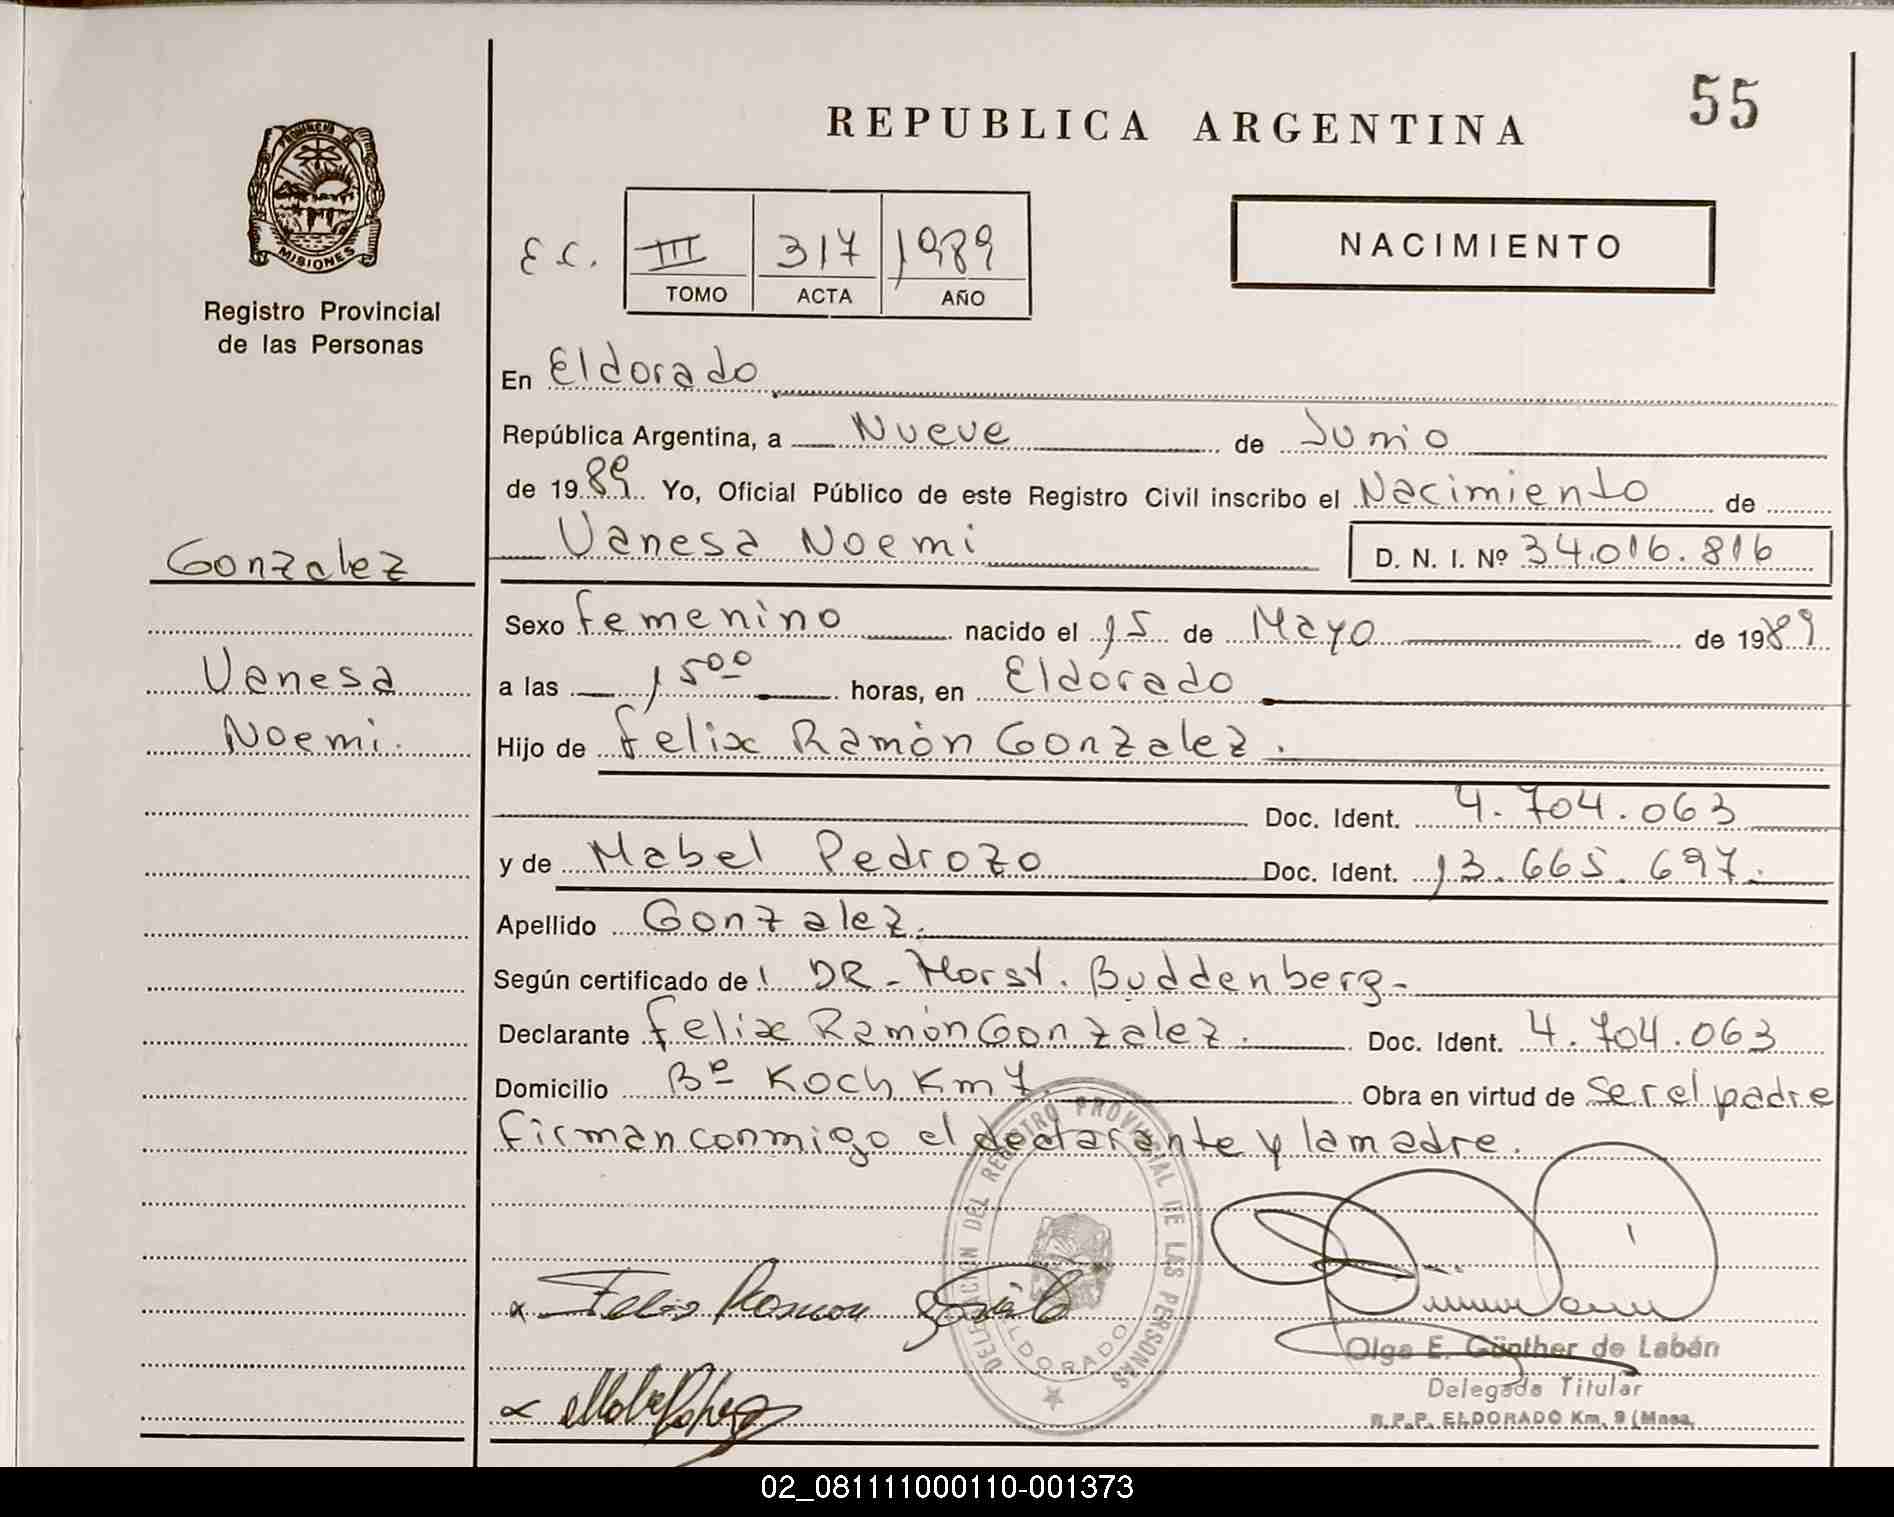 55
REPUBLICA ARGENTINA
PROVINCIA DE
MISIONES
Registro Provincial
de las Personas
E.C.
III 317 1989
TOMO ACTA AÑO
NACIMIENTO
En Eldorado
República Argentina, a Nueve de Junio
de 1989. Yo, Oficial Público de este Registro Civil inscribo el Nacimiento de
Vanesa Noemi D. N. I. Nº 34.016.816
Gonzalez
Vanesa
Noemi.
Sexo femenino nacido el 15 de Mayo de 1989
a las 15 00 horas, en Eldorado
Hijo de Felix Ramòn Gonzalez.
Doc. Ident. 4.704.063
y de Mabel Pedrozo Doc. Ident. 13.665.697.
Apellido Gonzalez.
Según certificado de: DR- Horst. Buddenberg-
Declarante Felix Ramón Gonzalez. Doc. Ident. 4.704.063
Domicilio Bº Koch Km 7. Obra en virtud de ser el padre
firman conmigo el declarante y la madre.
DELEGACION DEL REGISTRO PROVINCIAL DE LAS PERSONAS
ELDORADO
x Felix Ramon
Olga E. Günther de Labán
Delegada Titular
R.P.P. ELDORADO Km. 9 (Mnes.
02_081111000110-001373